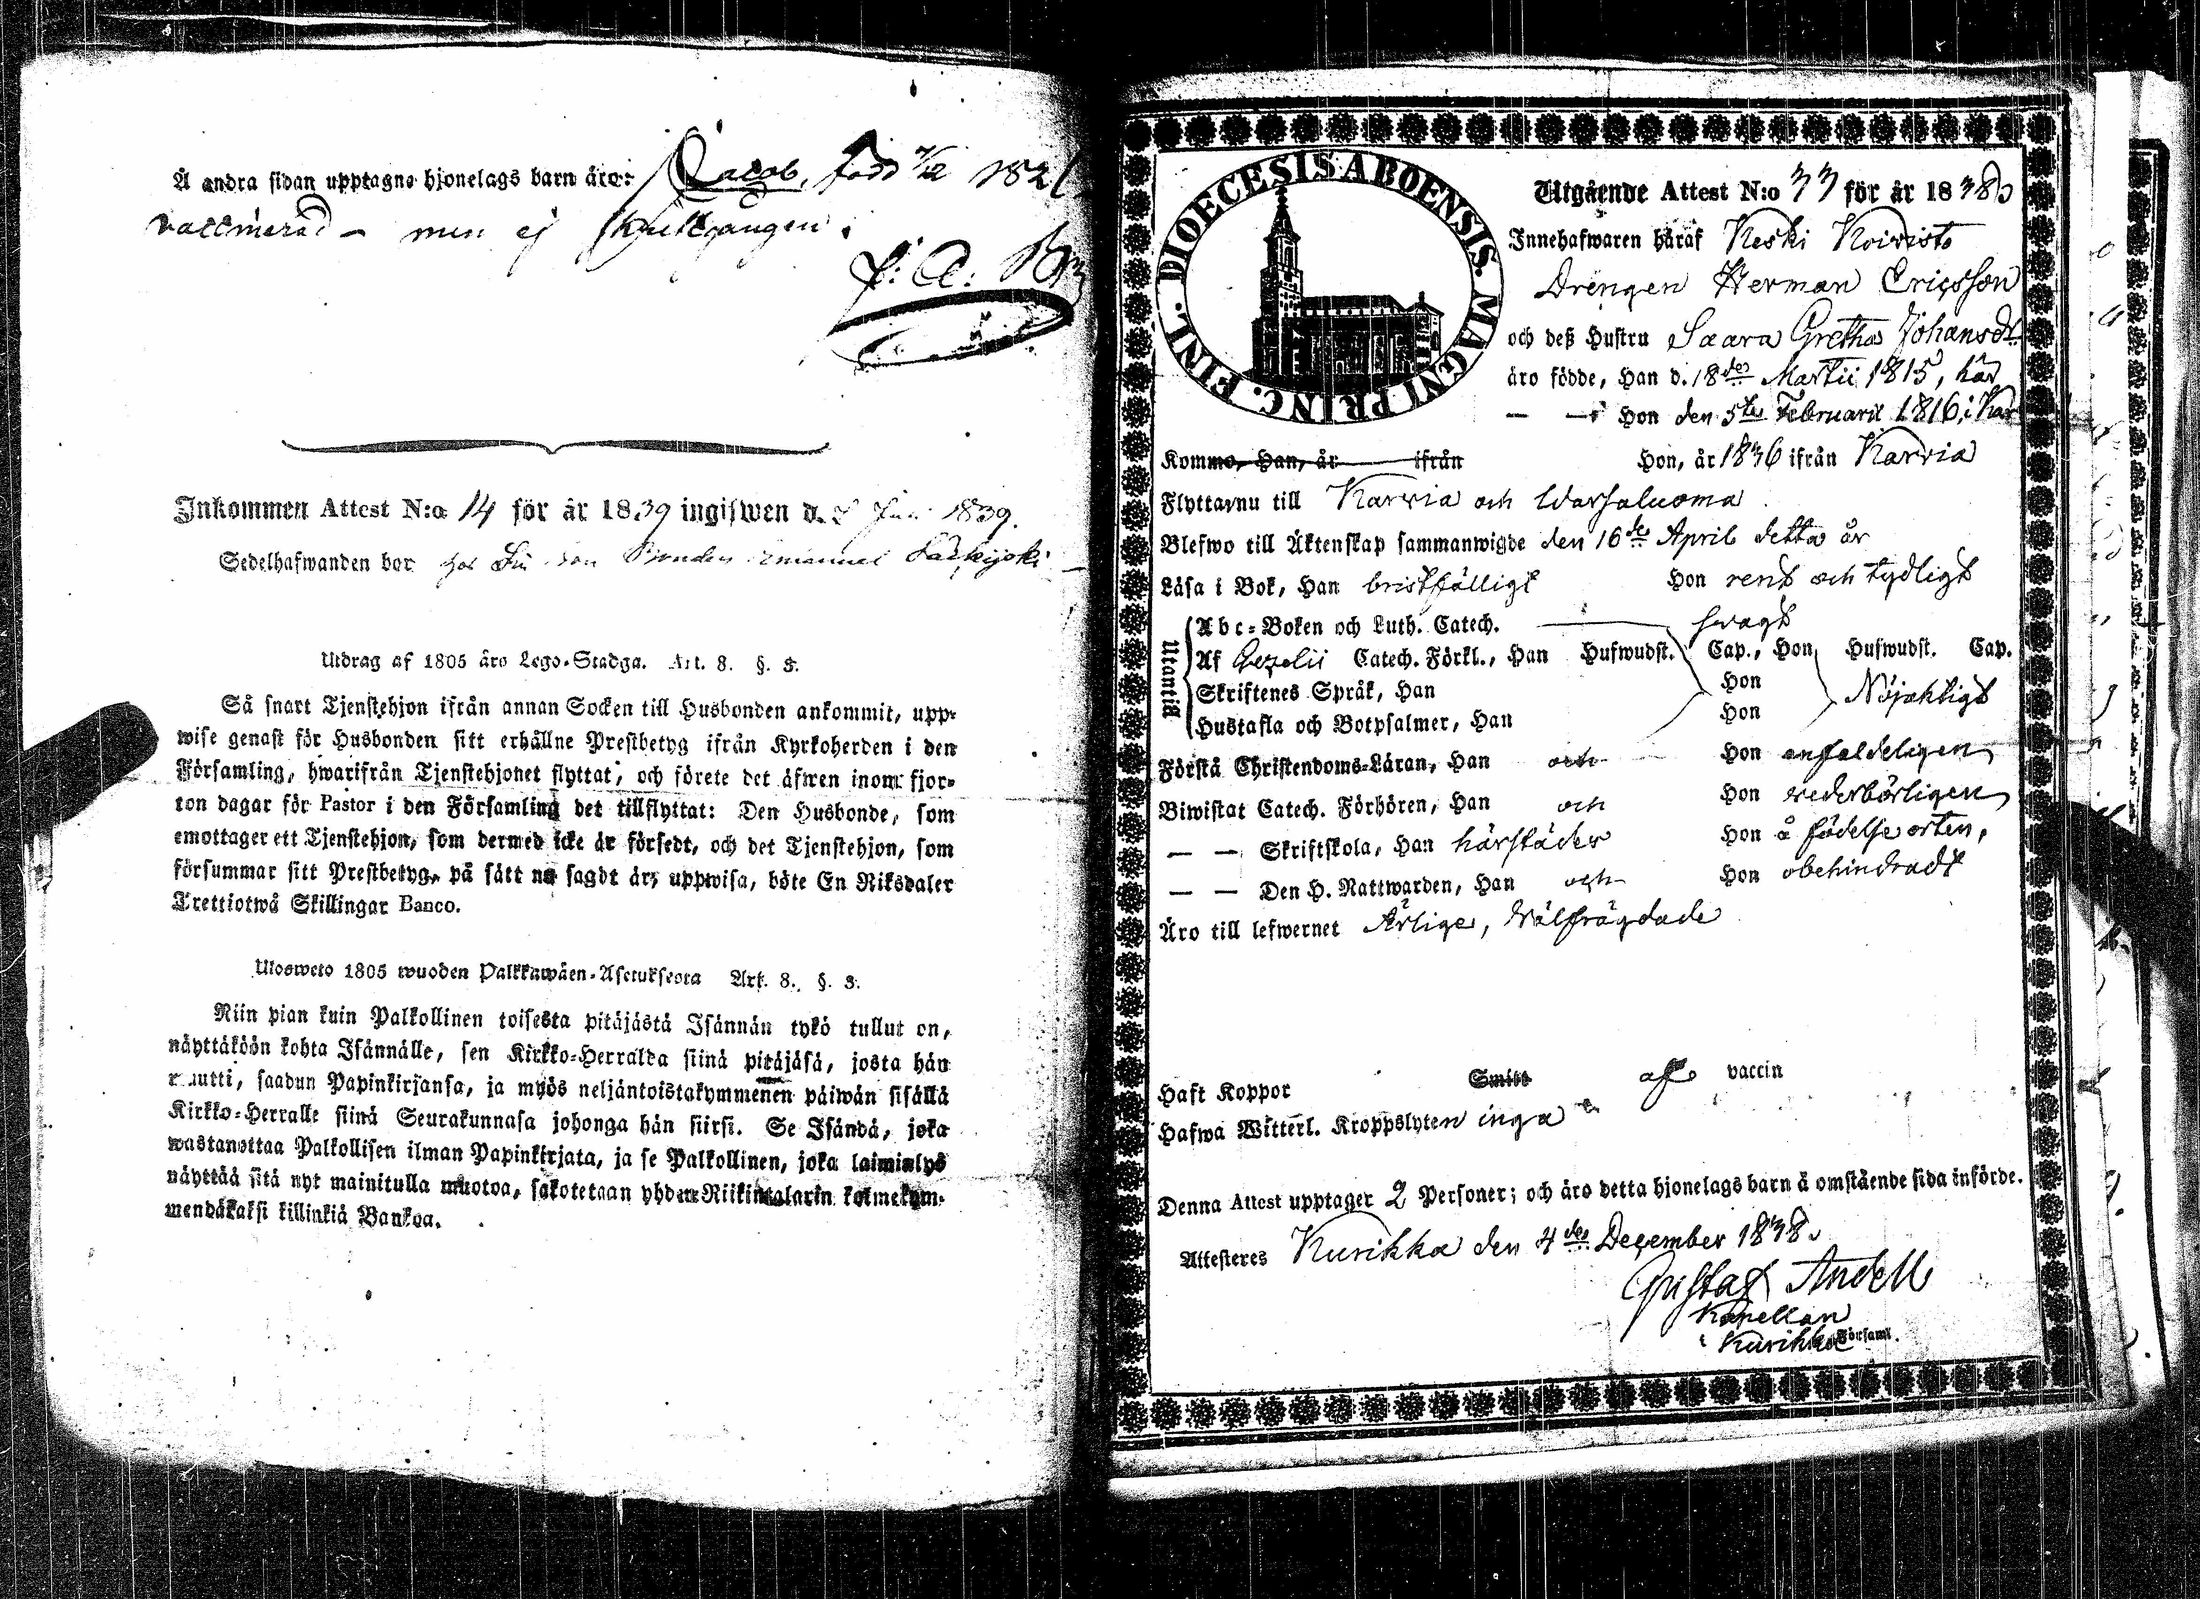 Å andra sidan upptagne hjonelags barn äro: Jacob, född
vaccinerad – men ej skriftgången.
Inkommen Attest N:o 14 för år 1839 ingifwen d. 1839.
Sedelhafwanden bor hos Emanuel
Utdrag af 1805 års Lego-Stadga. Art. 8. §. 3.
Så snart Tjenstehjon ifrån annan Socken till Husbonden ankommit, upp-
wise genast för Husbonden sitt erhållne Prestbetyg ifrån Kyrkoherden i den
Församling, hwarifrån Tjenstehjonet flyttat, och förete det äfwen inom fjor-
ton dagar för Pastor i den Församling det tillflyttat: Den Husbonde, som
emottager ett Tjenstehjon, som dermed icke är försedt, och det Tjenstehjon, som
försummar sitt Prestbetyg, på sätt nu sagdt är, uppwisa, böte En Riksdaler
Trettiotwå Skillingar Banco.
Ulosweto 1805 wuoden Palkkawäen-Asetuksesta Art. 8. §. 3.
Niin pian kuin Palkollinen toisesta pitäjästä Isännän tykö tullut on,
näyttäköön kohta Isännälle, sen Kirkko-Herralda siinä pitäjäsä, josta hän
muutti, saadun Papinkirjansa, ja myös neljäntoistakymmenen päiwän sisällä
Kirkko-Herralle siinä Seurakunnasa johonga hän siirsi. Se Isändä, joka
wastanottaa Palkollisen ilman Papinkirjata, ja se Palkollinen, joka laiminlyö
näyttää sitä nyt mainitulla muotoa, sakotetaan yhden Riikintalarin kolmekym-
mendäkaksi killinkiä Bankoa.
DIOECESIS ABOENSIS. MAGNI PRINC. FINL.
Utgående Attest N:o 33 för år 1838
Innehafwaren häraf Keski Koivisto
Drengen Herman Ericsson
och deß Hustru Saara Gretha Johansdr
äro födde, Han d. 18de Martii 1815, här
— — Hon den 5te Februarii 1816, i Kar
Kommo, Han, år ifrån Hon, år 1836 ifrån Karvia
Flyttarnu till Karvia och Warsaluoma
Blefwo till Äktenskap sammanwigde den 16de April detta år
Läsa i Bok, Han bristfälligt Hon rent och tydligt
Utantill
Abc-Boken och Luth. Catech. — swagt
Af Gezelii Catech. Förkl., Han Hufwudst. Cap., Hon Hufwudst. Cap.
Skriftenes Språk, Han Hon Nöjaktigt
Hustafla och Botpsalmer, Han Hon
Förstå Christendoms-Läran, Han och Hon enfaldeligen
Biwistat Catech. Förhören, Han och Hon wederbörligen
— — Skriftskola, Han härstädes Hon å födelse orten,
— — Den H. Nattwarden, Han och Hon obehindradt
Äro till lefwernet Ärlige, wälfrägdade
Haft Koppor Smitt af vaccin
Hafwa Witterl. Kroppslyten inga
Denna Attest upptager 2 Personer; och äro detta hjonelags barn å omstående sida införde.
Attesteres Kurikka den 4de December 1838.
Gustaf Andell
Kapellan
i Kurikka Församl.